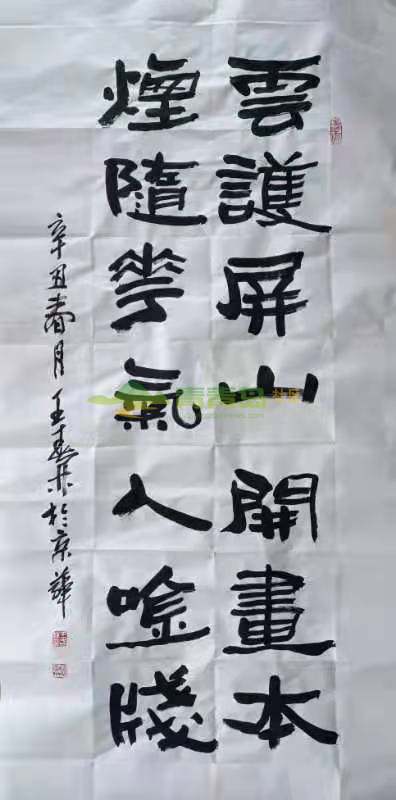 雲護屏山開畫本
煙隨華氣入唫牋
辛丑春月王於京華